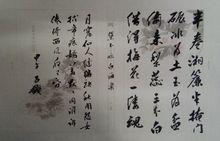 半卷湘簾半掩門
碾冰為土玉為盆
偷來梨蕊三分白
借得梅花一縷魂
月窟仙人縫縞袂
秋閨怨女拭啼痕
嬌羞默默同誰訴
倦倚西風夜已昏